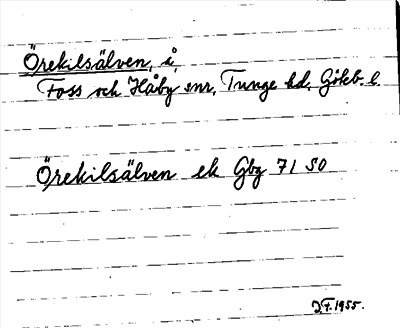 Örekilsälven, å,
Foss och Håby snr, Tunge hd, Göteb. l.
Örekilsälven ek Gbg 71 SO
1955.